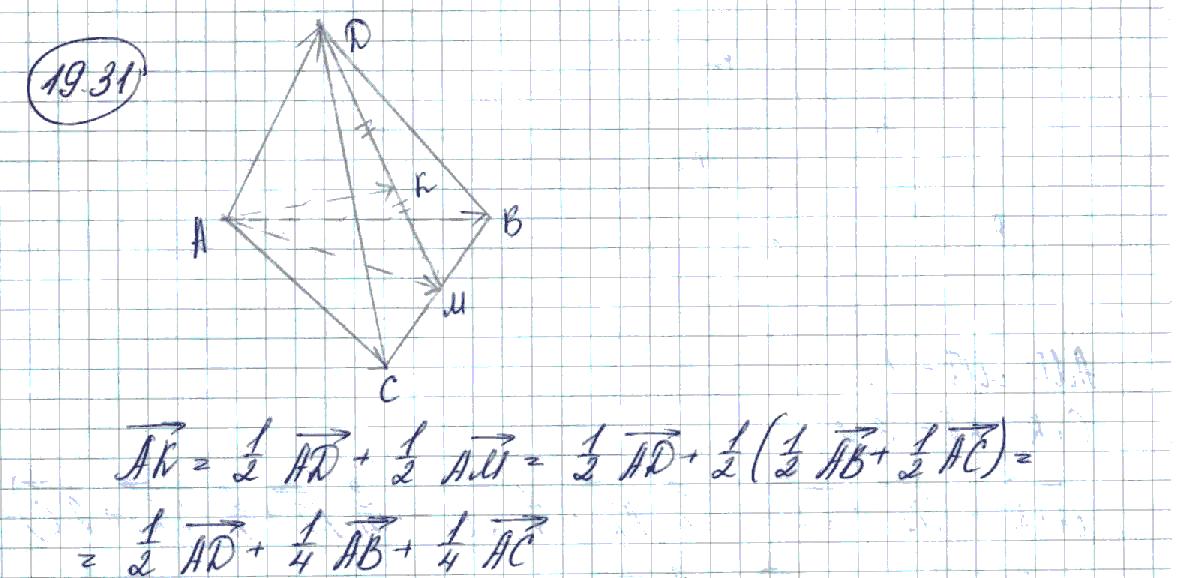 19.31
D
K
A
B
M
C
\overrightarrow{AK} = \frac{1}{2} \overrightarrow{AD} + \frac{1}{2} \overrightarrow{AM} = \frac{1}{2} \overrightarrow{AD} + \frac{1}{2} (\frac{1}{2} \overrightarrow{AB} + \frac{1}{2} \overrightarrow{AC}) =
= \frac{1}{2} \overrightarrow{AD} + \frac{1}{4} \overrightarrow{AB} + \frac{1}{4} \overrightarrow{AC}